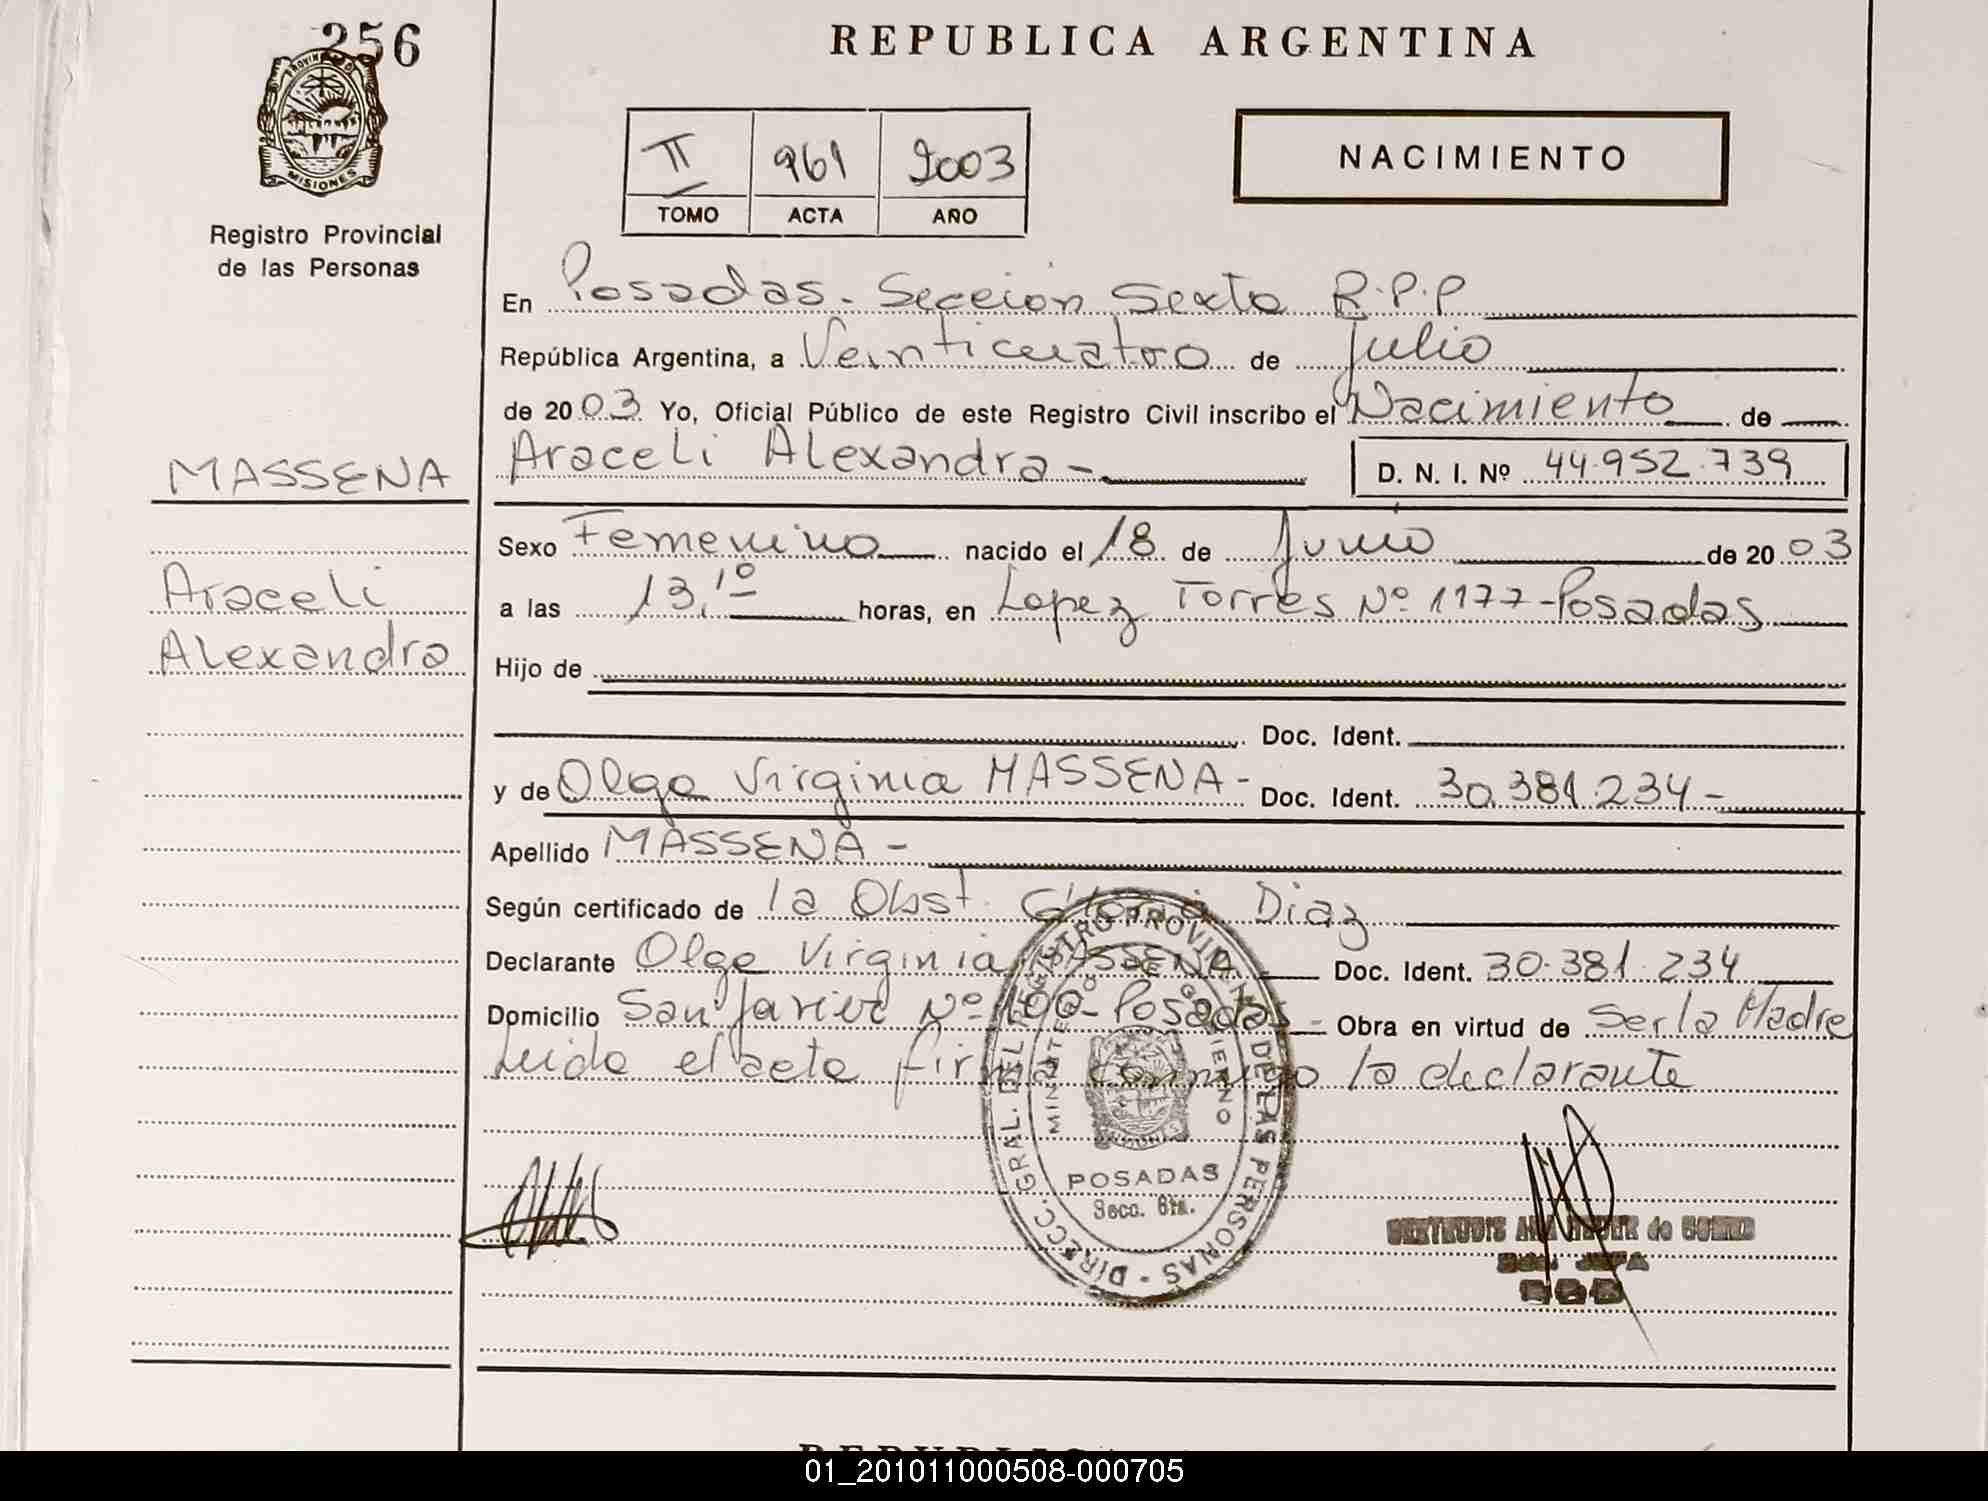 256
REPUBLICA ARGENTINA
PROVINCIA DE MISIONES
Registro Provincial
de las Personas
II 961 2003
TOMO ACTA AÑO
NACIMIENTO
En Posadas - Sección Sexta R.P.P
República Argentina, a Veinticuatro de Julio
de 2003 Yo, Oficial Público de este Registro Civil inscribo el Nacimiento de
MASSENA
Araceli Alexandra - D. N. I. Nº 44.952.739
Sexo Femenino nacido el 18 de Junio de 2003
Araceli
Alexandra
a las 13,10 horas, en Lopez Torres Nº 1177 - Posadas
Hijo de
Doc. Ident.
y de Olga Virginia MASSENA - Doc. Ident. 30.381.234 -
Apellido MASSENA -
Según certificado de la Obst. Diaz
Declarante Olga Virginia MASSENA Doc. Ident. 30.381.234
Domicilio San Javier Nº 100 - Posadas - Obra en virtud de Ser la Madre
Leida el acta firma conmigo la declarante
DIRECC. GRAL. DEL REGISTRO PROVINCIAL DE LAS PERSONAS
MINISTERIO DE GOBIERNO
MISIONES
POSADAS
Secc. 6ta.
GERTRUDIS de GOMEZ
REPUBLICA
01_201011000508-000705